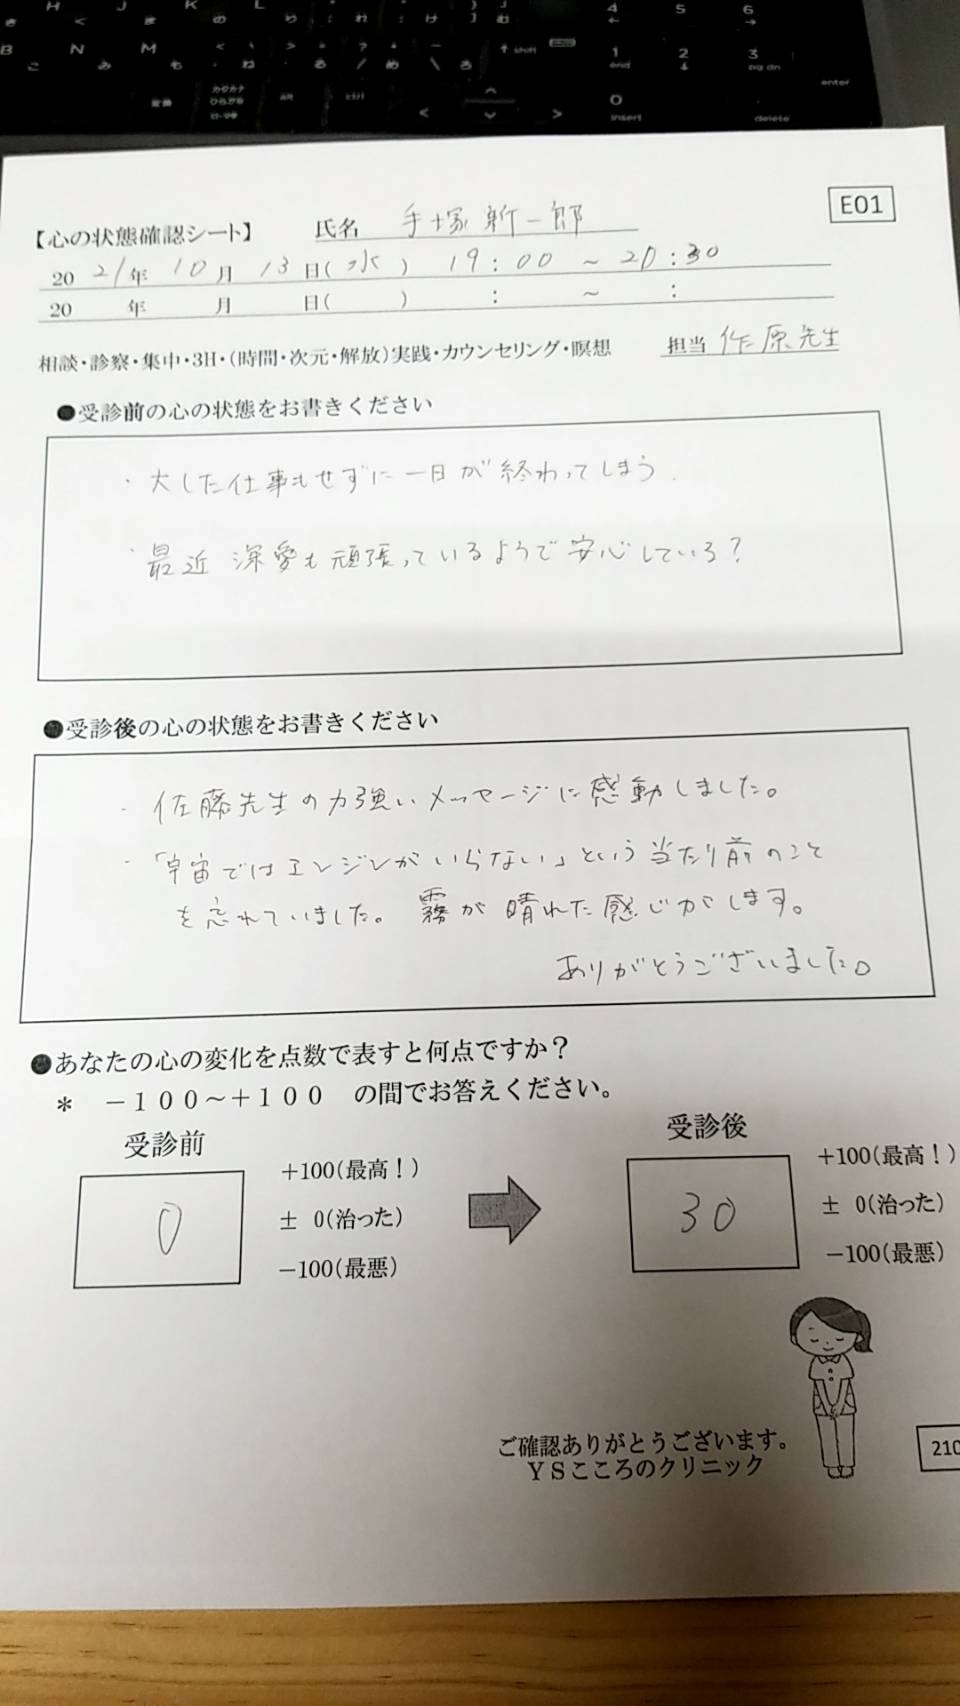 H J K L 4 5 6
B N M
こ み も ね る め ろ
shift 1 2 3
end pg dn
変換 カタカナ ひらがな ローマ字 alt ctrl 0 enter
insert delete
E01
【心の状態確認シート】 氏名 手塚新一郎
2021年 10月 13日(水) 19:00 ~ 20:30
20 年 月 日( ) : ~ :
相談・診察・集中・3H・(時間・次元・解放)実践・カウンセリング・瞑想 担当 作原先生
●受診前の心の状態をお書きください
・大した仕事もせずに一日が終わってしまう.
・最近 深愛も頑張っているようで安心している?
●受診後の心の状態をお書きください
・佐藤先生の力強いメッセージに感動しました。
・「宇宙ではエンジンがいらない」という当たり前のこと
を忘れていました。霧が晴れた感じがします。
ありがとうございました。
●あなたの心の変化を点数で表すと何点ですか?
* -100~+100 の間でお答えください。
受診前 受診後
+100(最高!) +100(最高!)
0 ± 0(治った) 30 ± 0(治った)
-100(最悪) -100(最悪)
ご確認ありがとうございます。
YSこころのクリニック
210